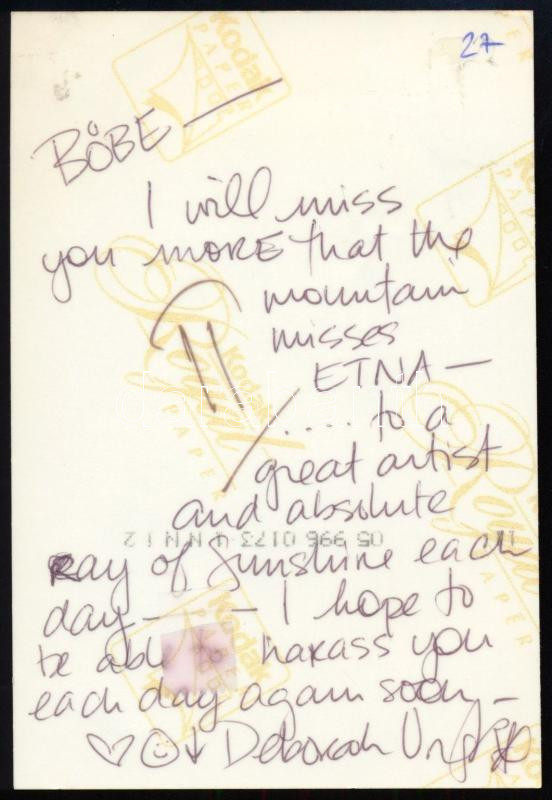 27
BÖBE —
I will miss
you MORE that the
mountain
misses
ETNA —
.... to a
great artist
and absolute
Ray of Sunshine each
day — — I hope to
be able harass you
each day again soon —
Deborah
Kodak
PAPER
Kodak
PAPER
Royal
Kodak
PAPER
Royal
PAPER
05 996 0173